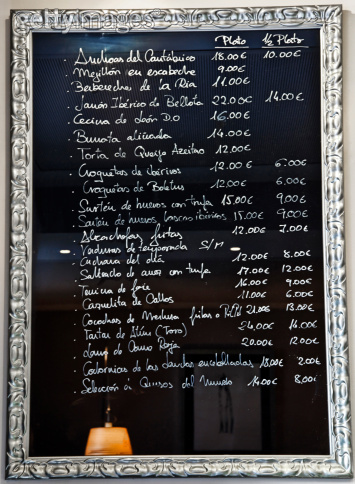 gettyimages
Plato ½ Plato
· Anchoas del Cantábrico 18.00€ 10.00€
· Mejillón en escabeche 9.00€
· Berberechos de la Ria 11.00€
· Jamón Ibérico de Bellota 22.00€ 14.00€
· Cecina de León D.O 16.00€
· Burrata aliñada 14.00€
· Torta de Queso Azeitao 12.00€
· Croquetas de ibéricos 12.00€ 6.00€
· Croquetas de Boletus 12.00€ 6.00€
· Sartén de huevos con trufa 15.00€ 9.00€
· Sartén de huevos, ibéricos 15.00€ 9.00€
· Alcachofas fritas 12.00€ 7.00€
· Verduras de temporada S/M
· Cuchara del día 12.00€ 8.00€
· Salteado de con trufa 17.00€ 12.00€
· Terrina de foie 16.00€ 9.00€
· Cazuelita de Callos 11.00€ 6.00€
· Cocochas de Merluza fritas o Pil Pil 21.00€ 13.00€
· Tartar de Atún (Toro) 24.00€ 14.00€
· Lomo de Roja 20.00€ 12.00€
· de las encebolladas 18.00€ 2.00€
· Selección de Quesos del Mundo 14.00€ 8.00€